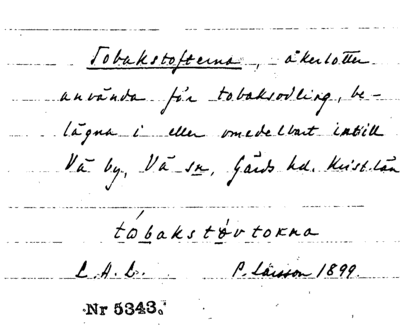 Tobakstofterna, åkerlotter
använda för tobaksodling, be-
lägna i eller omedelbart intill
Vä by, Vä sn, Gärds hd. Krist. län
tobakstovtokna
L.A.L. P. Larsson 1899.
Nr 5343.